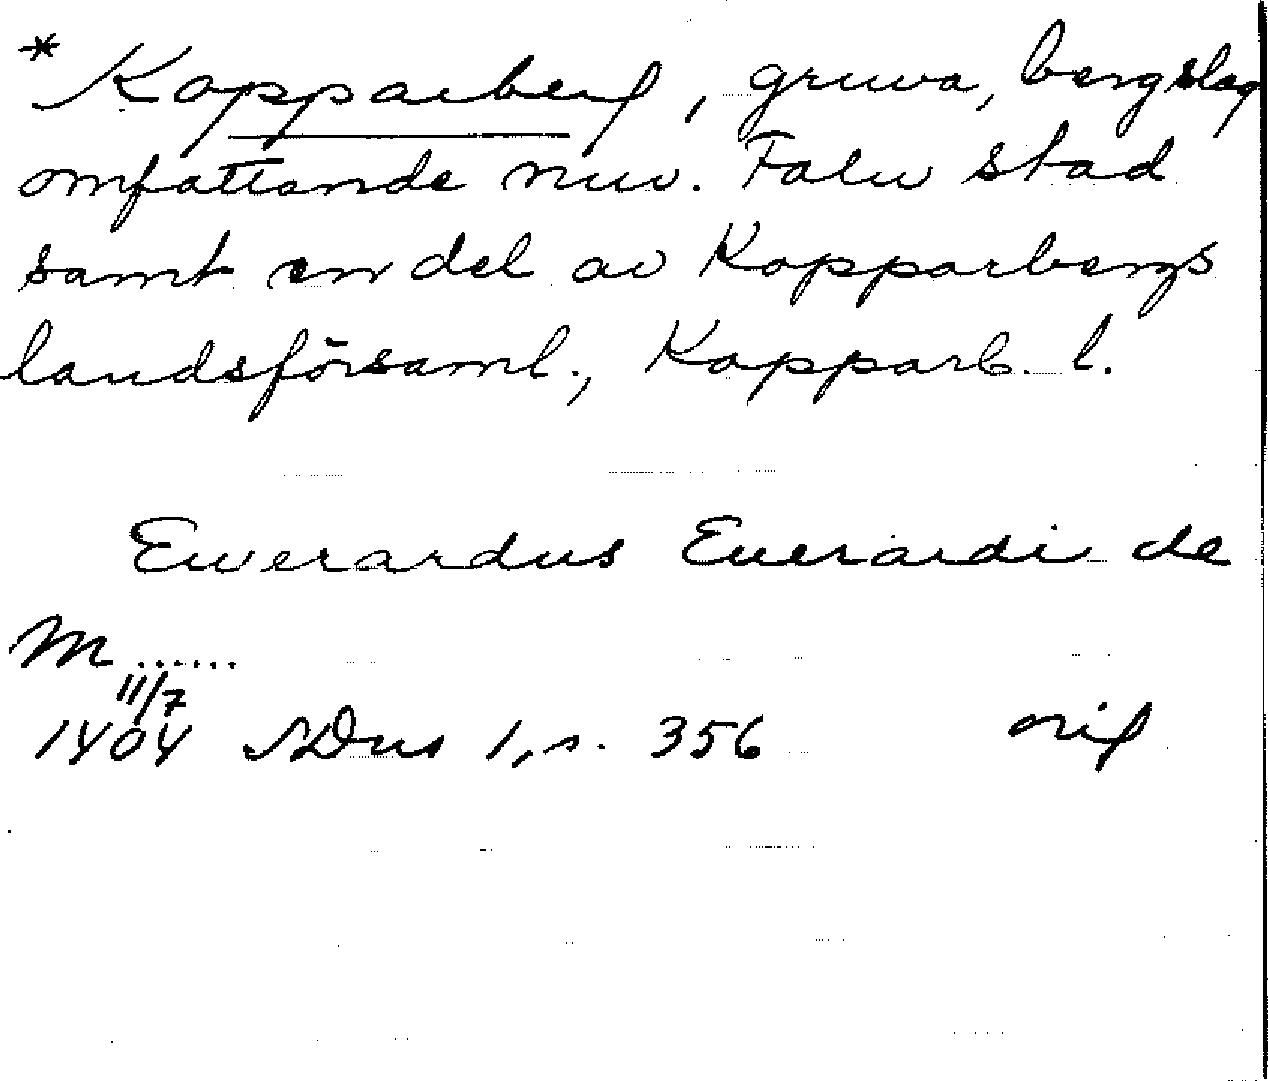 * Kopparberg, gruva, bergslag
omfattande nuv. Falu stad
samt en del av Kopparbergs
landsförsaml., Kopparb. l.
Ewerardus Euerardi de
M......
11/7
1404 SDns 1, s. 356 orig